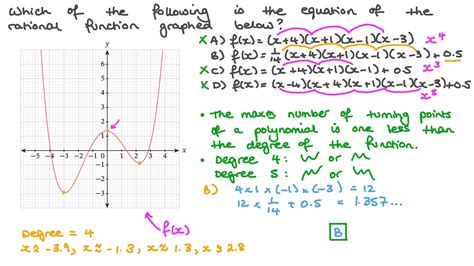 Which of the following is the equation of the
rational function graphed below?
x A) f(x)=(x+4)(x+1)(x-1)(x-3) x⁴
B) f(x)=1/14(x+4)(x+1)(x-1)(x-3)+0.5
x C) f(x)=(x+4)(x+1)(x-1)+0.5 x³
x D) f(x)=(x-4)(x+4)(x+1)(x-1)(x-3)+0.5
x⁵
y
4
3
2
1
-1
-2
-3
-5 -4 -3 -2 -1 0 1 2 3 4 x
f(x)
• The max number of turning points
of a polynomial is one less than
the degree of the function.
• Degree 4: or
Degree 5: or
B) 4×1×(-1)×(-3) = 12
12 × 1/14 + 0.5 = 1.357...
B
Degree = 4
x≈-3.9, x≈-1.3, x≈1.3, x≈2.8